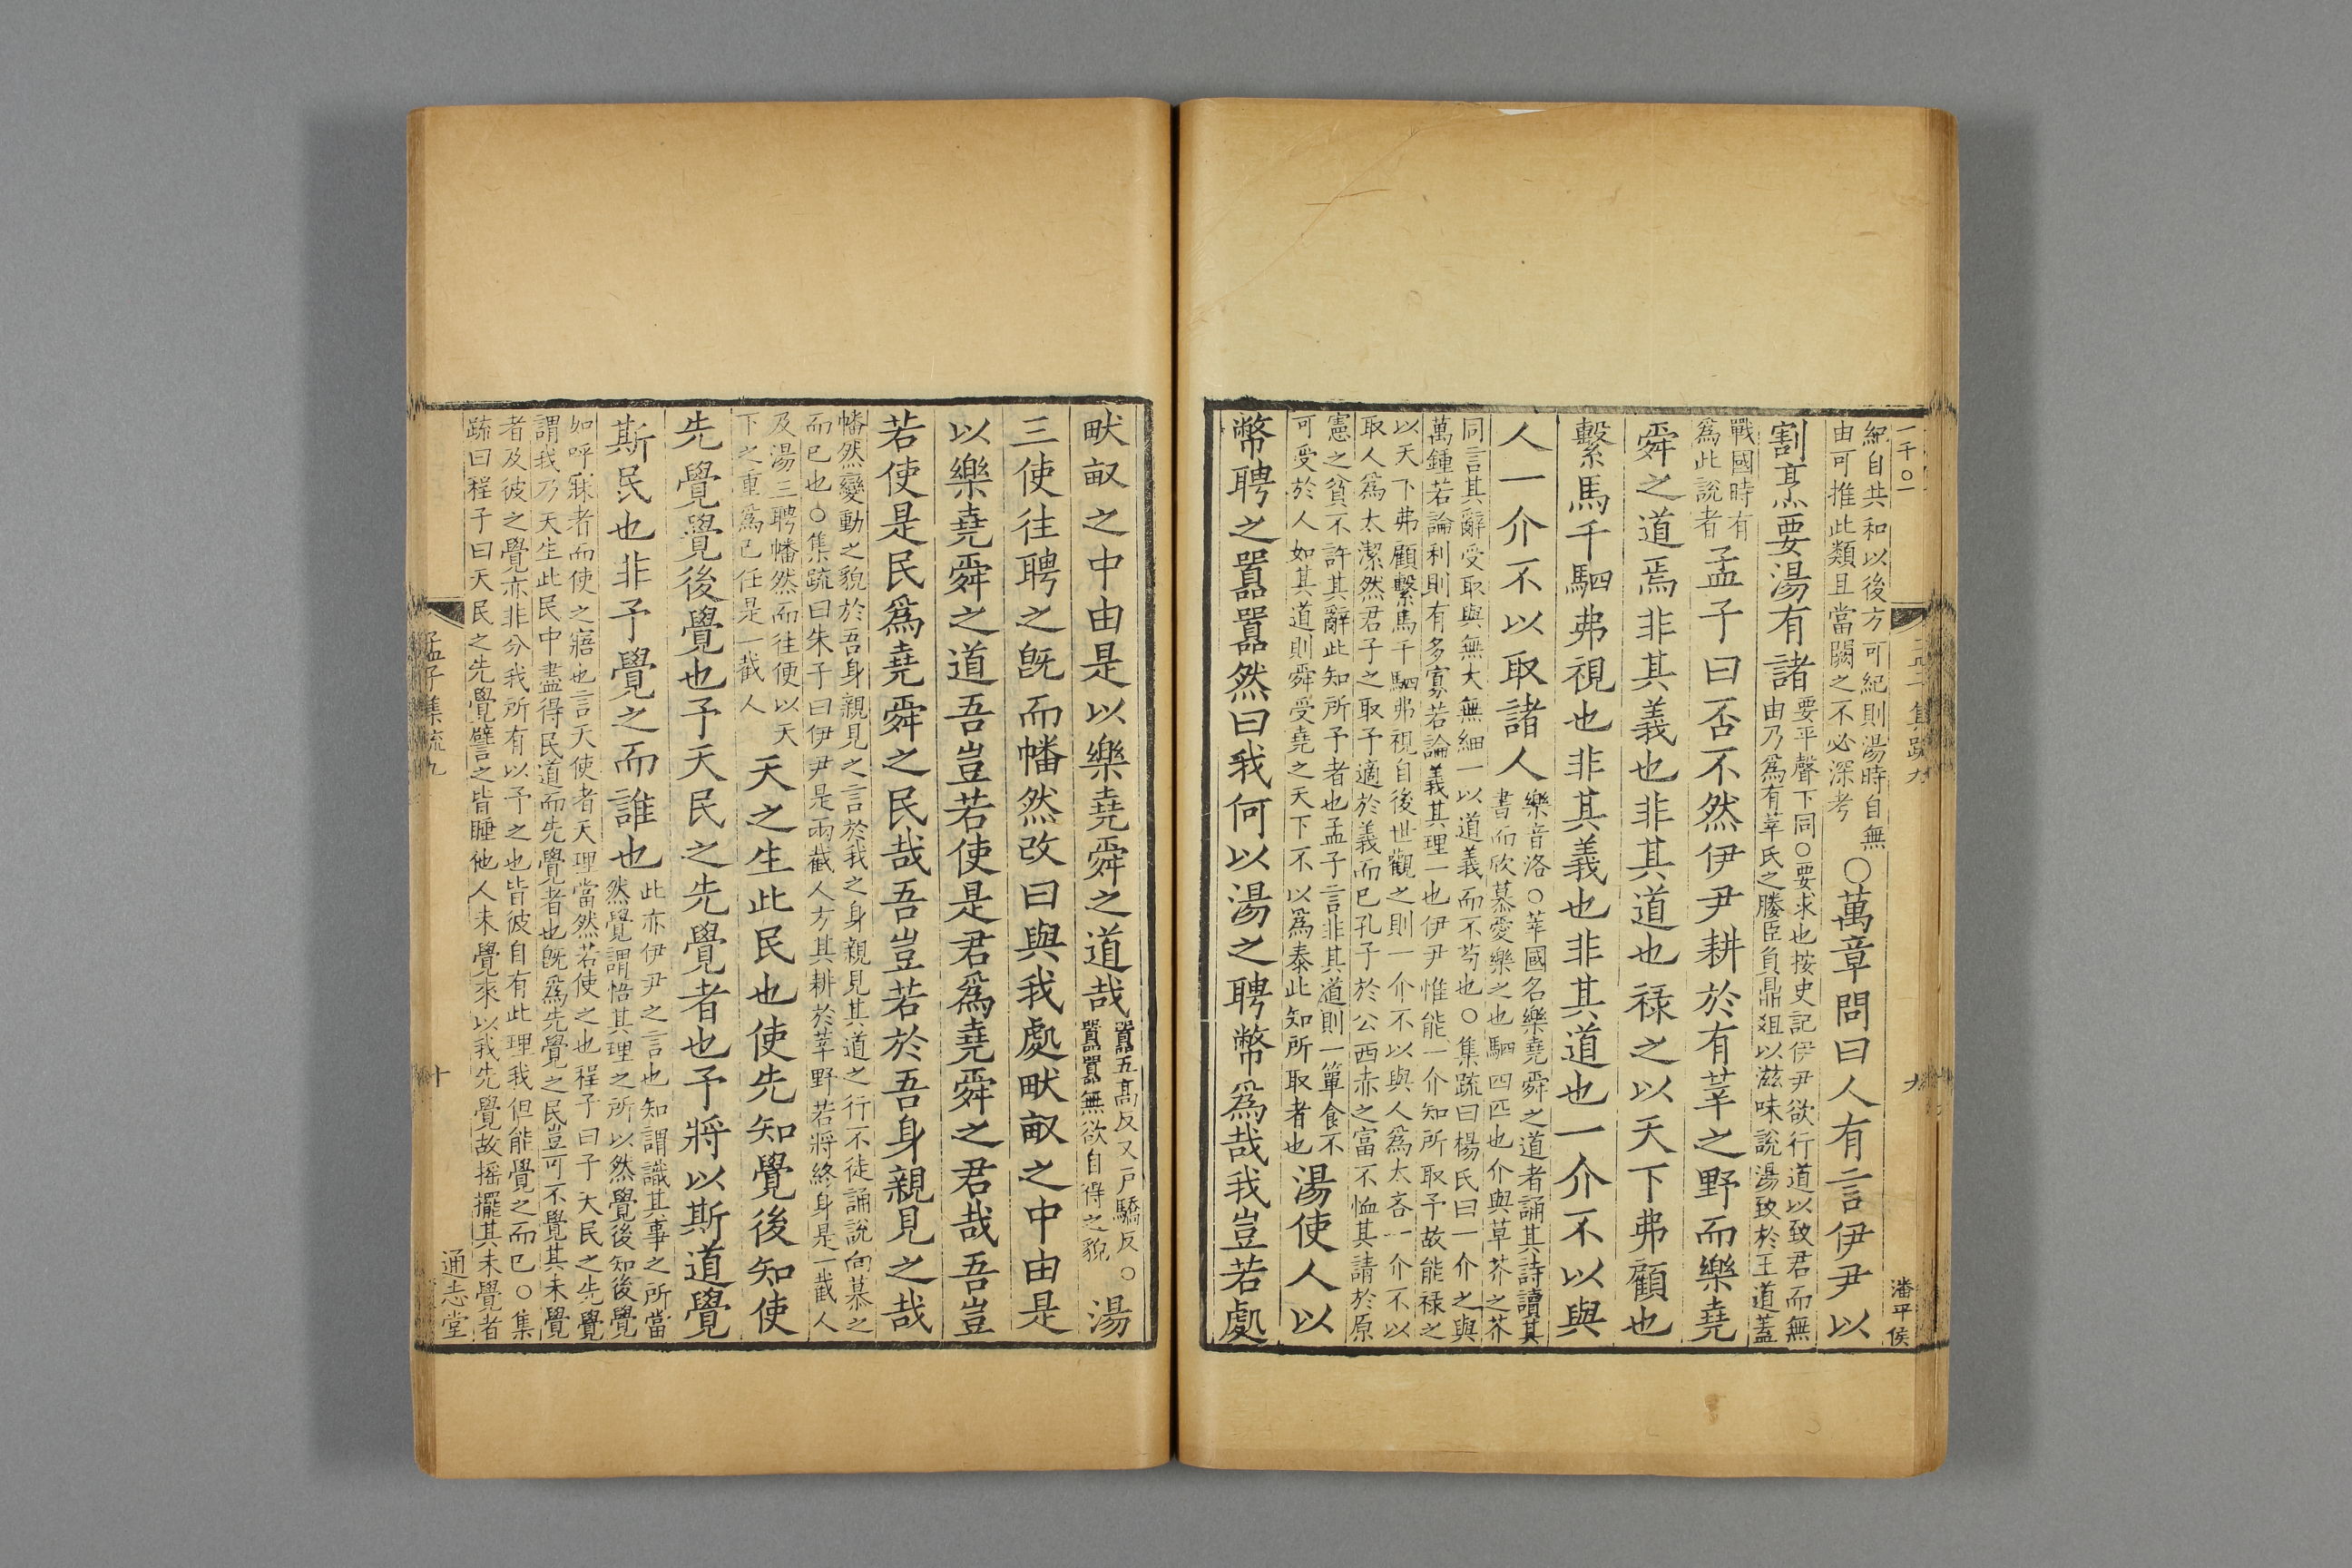 一千〇一
孟子集疏九
九
潘平侯
紀自共和以後方可紀則湯時自無
由可推此類且當闕之不必深考
〇萬章問曰人有言伊尹以
割烹要湯有諸
要平聲下同〇要求也按史記伊尹欲行道以致君而無
由乃爲有莘氏之媵臣負鼎俎以滋味說湯致於王道蓋
戰國時有
爲此說者
孟子曰否不然伊尹耕於有莘之野而樂堯
舜之道焉非其義也非其道也祿之以天下弗顧也
繫馬千駟弗視也非其義也非其道也一介不以與
人一介不以取諸人
樂音洛〇莘國名樂堯舜之道者誦其詩讀其
書而欣慕愛樂之也駟四匹也介與草芥之芥
同言其辭受取與無大無細一以道義而不苟也〇集疏曰楊氏曰一介之與
萬鍾若論利則有多寡若論義其理一也伊尹惟能一介知所取予故能祿之
以天下弗顧繫馬千駟弗視自後世觀之則一介不以與人爲太吝一介不以
取人爲太潔然君子之取予適於義而已孔子於公西赤之富不恤其請於原
憲之貧不許其辭此知所予者也孟子言非其道則一簞食不
可受於人如其道則舜受堯之天下不以爲泰此知所取者也
湯使人以
幣聘之囂囂然曰我何以湯之聘幣爲哉我豈若處
畎畝之中由是以樂堯舜之道哉
囂五高反又戶驕反〇
囂囂無欲自得之貌
湯
三使往聘之旣而幡然改曰與我處畎畝之中由是
以樂堯舜之道吾豈若使是君爲堯舜之君哉吾豈
若使是民爲堯舜之民哉吾豈若於吾身親見之哉
幡然變動之貌於吾身親見之言於我之身親見其道之行不徒誦說向慕之
而已也〇集疏曰朱子曰伊尹是兩截人方其耕於莘野若將終身是一截人
及湯三聘幡然而往便以天
下之重爲己任是一截人
天之生此民也使先知覺後知使
先覺覺後覺也予天民之先覺者也予將以斯道覺
斯民也非予覺之而誰也
此亦伊尹之言也知謂識其事之所當
然覺謂悟其理之所以然覺後知後覺
如呼寐者而使之寤也言天使者天理當然若使之也程子曰予天民之先覺
謂我乃天生此民中盡得民道而先覺者也旣爲先覺之民豈可不覺其未覺
者及彼之覺亦非分我所有以予之也皆彼自有此理我但能覺之而已〇集
疏曰程子曰天民之先覺譬之皆睡他人未覺來以我先覺故搖擺其未覺者
孟子集疏九
十
通志堂